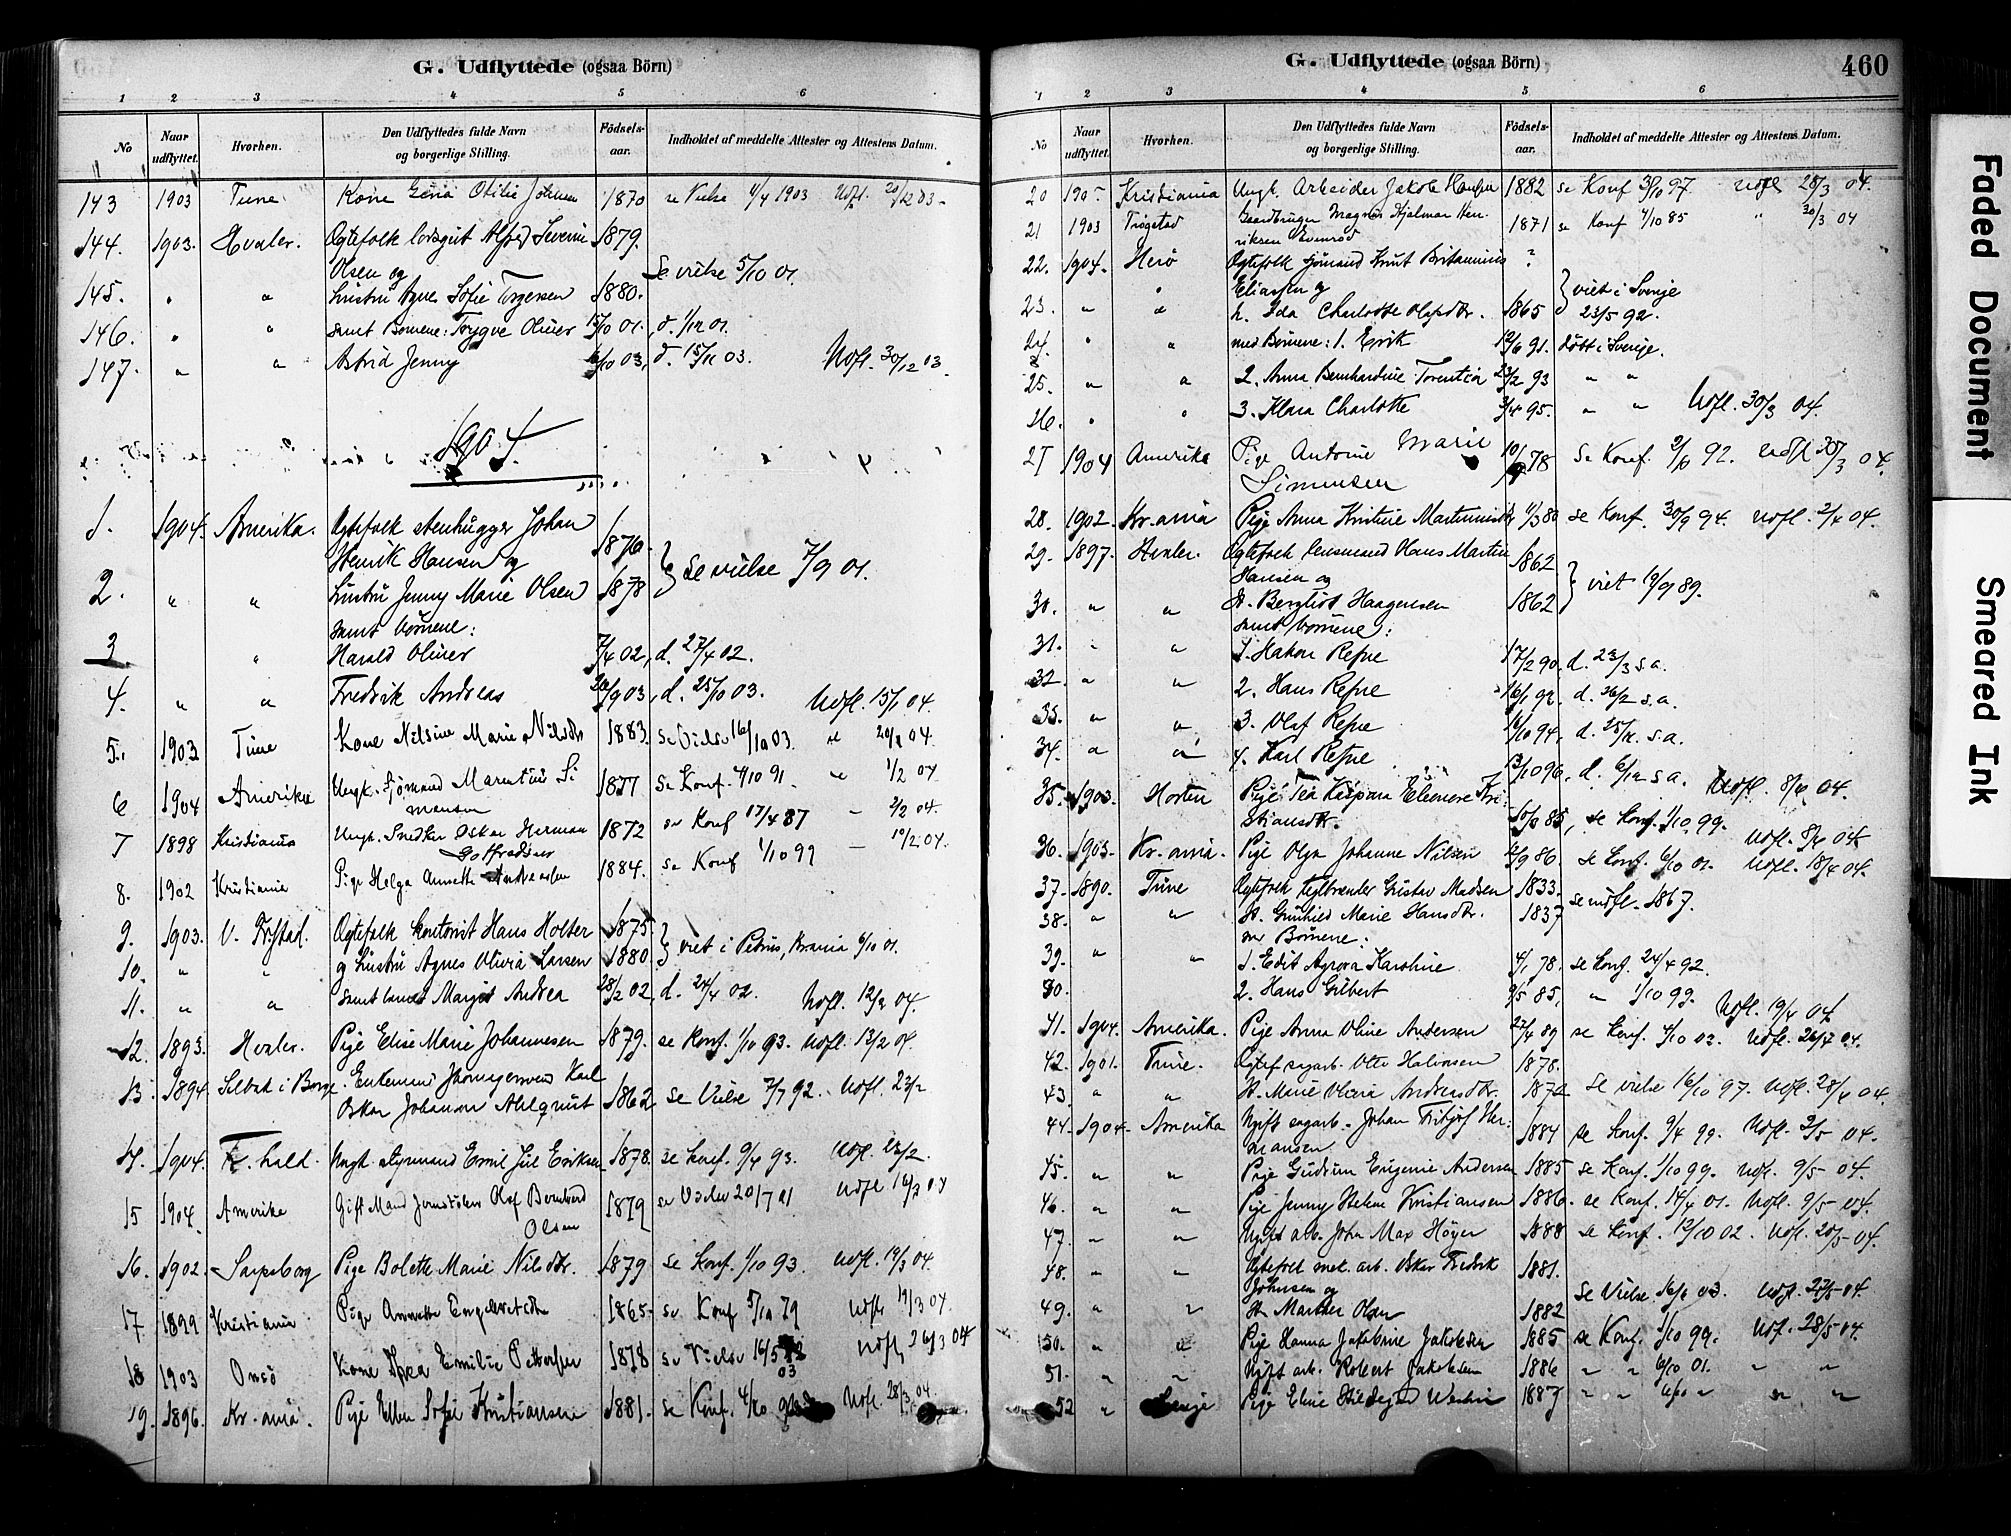 G. Udflyttede (ogsaa Börn)
1 2 3 4 5 6
No Naar udflyttet. Hvorhen. Den Udflyttedes fulde Navn og borgerlige Stilling. Födsels-aar. Indholdet af meddelte Attester og Attestens Datum.
143 1903 Tune Kone Gina Otilie Johnsen 1870 se Vielse 1903 Udfl. 20/12 03
144. 1903. Hvaler. Ægtefolk lodsgut Alfred Severin 1879
Olsen og Se vielse 5/10 01.
145. " " hustru Agnes Sofie Torgersen 1880.
146. " " samt Børnene: Trygve Oliver 15/10 01. d. 1/12 01.
147. " " Astrid Jenny 6/10 03, d. 15/11 03. Udfl. 30/12 03.
1904.
1. 1904. Amerika. Ægtefolk stenhugger Johan
Henrik Hansen og 1876.
2. " " hustru Jenny Marie Olsen 1878 } Se vielse 7/9 01.
samt børnene:
3 " Harald Oliver 7/4 02, d. 27/4 02.
4. " " Fredrik Andreas 20/9 03, d. 25/10 03. Udfl. 15/1 04.
5. 1903 Tune Kone Nilsine Marie Nilsdtr 1883. Se Vielse 16/10 03. " 20/1 04.
6 1904 Amerika Ungk. Sjømand Martin Si 1877 Se Konf. 4/10 91 " 1/2 04
monsen
7 1898 Kristiania Ungk. Snedker Oskar Herman 1872 se Konf 17/4 87 — 2/2 04.
Gotfredsen
8. 1902 Kristiania Pige Helga Annette Andreasen 1884. se Konf 1/10 99 — 10/2 04.
9. 1903. V. Fr.stad. Ægtefolk kontorist Hans Holter 1875.
10. " " og hustru Agnes Olivia Larsen 1880. } viet i Petrus, Krania 6/10 01.
11. " " samt barnet Margit Andrea 28/2 02, d. 24/4 02. Udfl. 12/2 04.
12. 1893. Hvaler. Pige Elise Marie Johannesen 1879. se Konf. 1/10 93. Udfl. 13/2 04.
13. 1894. Selbak i Borge. Enkemand Karl
Oskar Johannes Ahlqvist 1862 se Vielse 7/7 92. Udfl. 23/2
14. 1904. Fr. hald. Ungk. styrmand Emil Jul Eriksen 1878. se Konf. 9/4 93. Udfl. 25/2.
15 1904. Amerika Gift Mand Olaf Bernhard 1879 se Vielse 20/7 01 Udfl 16/2 04
Olsen
16. 1902. Sarpsborg Pige Bolette Marie Nilsdtr. 1879 se Konf. 1/10 93. Udfl. 19/3 04.
17 1899 Kristiania Pige Annette Engebretsdtr 1865 se Konf 5/10 79 Udfl. 19/3 04.
18 1903 Onsö Kone Thea Emilie Pettersen 1878 se Vielse 16/5 03 Udfl. 26/3 04
19. 1896. Kr.ania. Pige Ellen Sofie Kristiansen 1881. se Konf. 4/10 Udfl. 28/3 04.
G. Udflyttede (ogsaa Börn) 460
1 2 3 4 5 6
No Naar udflyttet Hvorhen. Den Udflyttedes fulde Navn og borgerlige Stilling. Födsels-aar. Indholdet af meddelte Attester og Attestens Datum.
20 190 Kristiania Ungk. Arbeider Jakob Hansen 1882 se Konf 3/10 97. Udfl 28/3 04.
21 1903 Trøgstad Gaardbruger Magnus Hjalmar Hen- 1871 se Konf 4/10 85 " 30/3 04
riksen
22. 1904. Herö Ægtefolk sjømand Knut Britanius ?
Eliassen og } viet i Sverige
23. " " h. Ida Charlotte Olafsdtr. 1865 23/5 92.
24. " " med Børnene: 1. Erik 12/6 91. døbt i Sverige.
25. " " 2. Anna Bernhardine Torentia 23/2 93 " "
26. " " 3. Klara Charlotte 3/4 95. " " Udfl. 30/3 04.
27 1904 Amerika Pige Antonie Marie 78 Se Konf. 2/10 92. Udfl 30/3 04.
Simensen
28. 1902. Kr.ania Pige Anna Kristine Martinius 1/3 80 se Konf. 30/9 94. Udfl. 2/4 04.
29. 1897. Hvaler. Ægtefolk lensmand Hans Martin
Hansen og 1862
30. " " H. Bergliot Haagensen 1862 } viet 19/9 89.
samt børnene:
31. " " 1. Hakon Refne 17/2 90, d. 23/3 s.a.
32. " " 2. Hans Refne 16/1 92, d. 26/2 s.a.
33. " " 3. Olaf Refne 11/10 94, d. 25/11 s.a.
34. " " 4. Karl Refne 13/10 96, d. 6/12 s.a. Udfl. 8/4 04.
35. 1903. Horten Pige Tea Kaspara Eleonore Kri-
stiansdtr. 85, se Konf. 1/10 99. Udfl. 8/4 04.
36. 1903. Kr.ania. Pige Olga Johanne Nilsen 2/9 86. se Konf. 6/10 01. Udfl. 18/4 04.
37. 1890. Tune Ægtefolk teglbrænder Gustav Madsen 1833.
38. " " H. Gunhild Marie Hansdtr. 1837 se indfl. 1867.
m Børnene:
39. " " 1. Edit Agrora Karoline 4/1 78. se Konf. 24/4 92.
40. 2. Hans Gilbert 9/5 85, " 1/10 99. Udfl. 19/4 04.
41. 1904. Amerika. Pige Anna Oline Andersen 27/4 89 se Konf. 4/10 03. Udfl. 26/4 04.
42. 1901. Tune. Ægtef. sagarb. Otto Halvorsen 1878.
43. " " H. Marie Olivia Andreasdtr. 187 Se vielse 16/10 97. Udfl. 28/4 04.
44. 1904. Amerika Ugift sagarb. Johan Fritjof Her-
mansen 1884 se Konf. 9/4 99. Udfl. 2/5 04.
45. " " Pige Gudrun Eugenie Andersen 1885 se Konf. 1/10 99. Udfl. 9/5 04.
46. " " Pige Jenny Helene Kristiansen 1886. se Konf. 14/4 01. Udfl. 9/5 04.
47. " " Ugift arb. John Max Höyer 1888 se Konf. 12/10 02. Udfl. 20/5 04.
48. " " Ægtefolk mek. arb. Oskar Fredrik 1881.
Johnsen og
49. " " H. Olsen 1882 Se Vielse 03. Udfl. 27/5 04.
50. " " Pige Hanna Jakobine Jakobsen 1885 se Konf. 1/10 99. Udfl. 28/5 04.
51. " " Ugift arb. Robert Jakobsen 1886 " " 6/10 01. " "
52 " Pige Eline Hildegard 1887 " " " " "
Faded Document
Smeared Ink